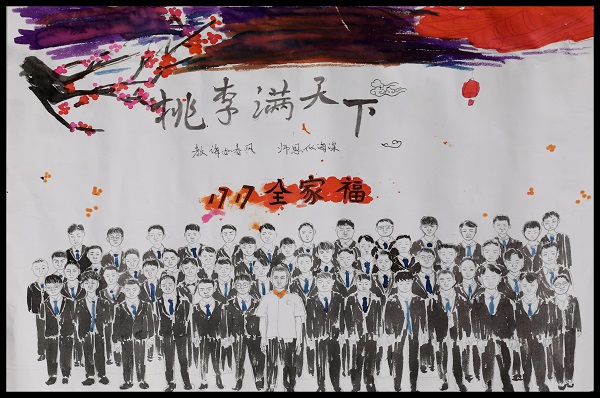 桃李满天下
教诲如春风 师恩似海深
1717全家福